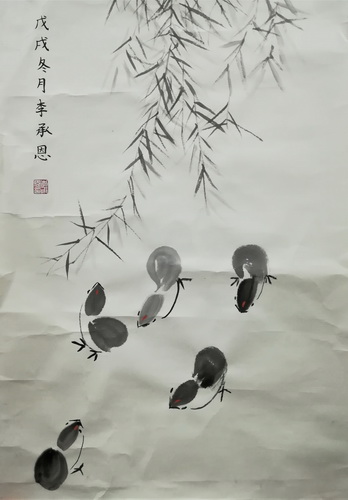 戊戌冬月李承恩